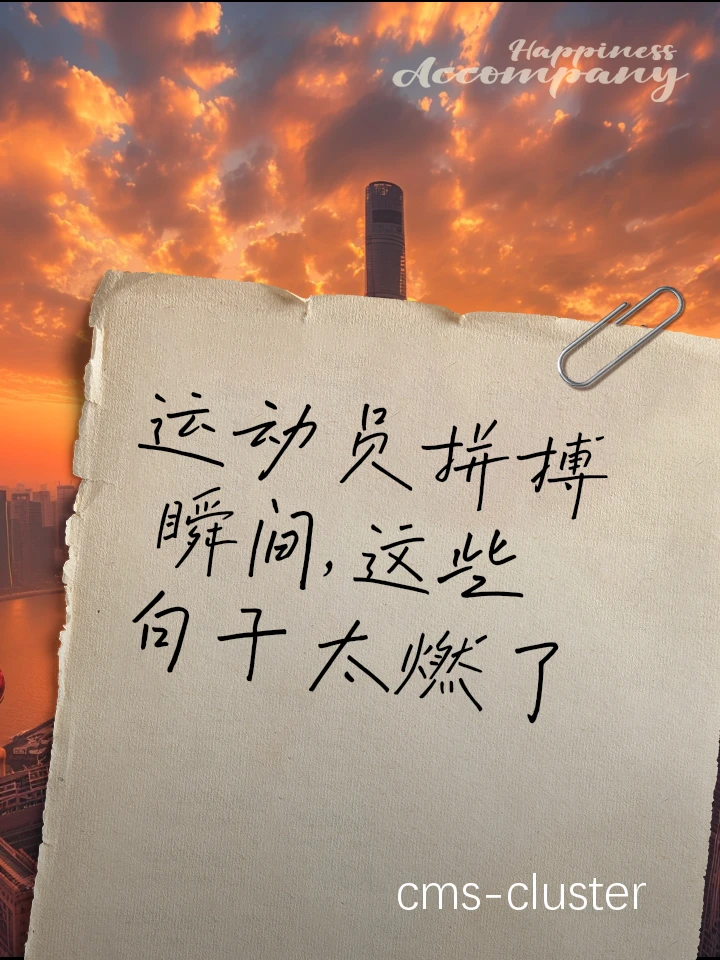 Happiness
Accompany
运动员拼搏
瞬间,这些
句子太燃了
cms-cluster